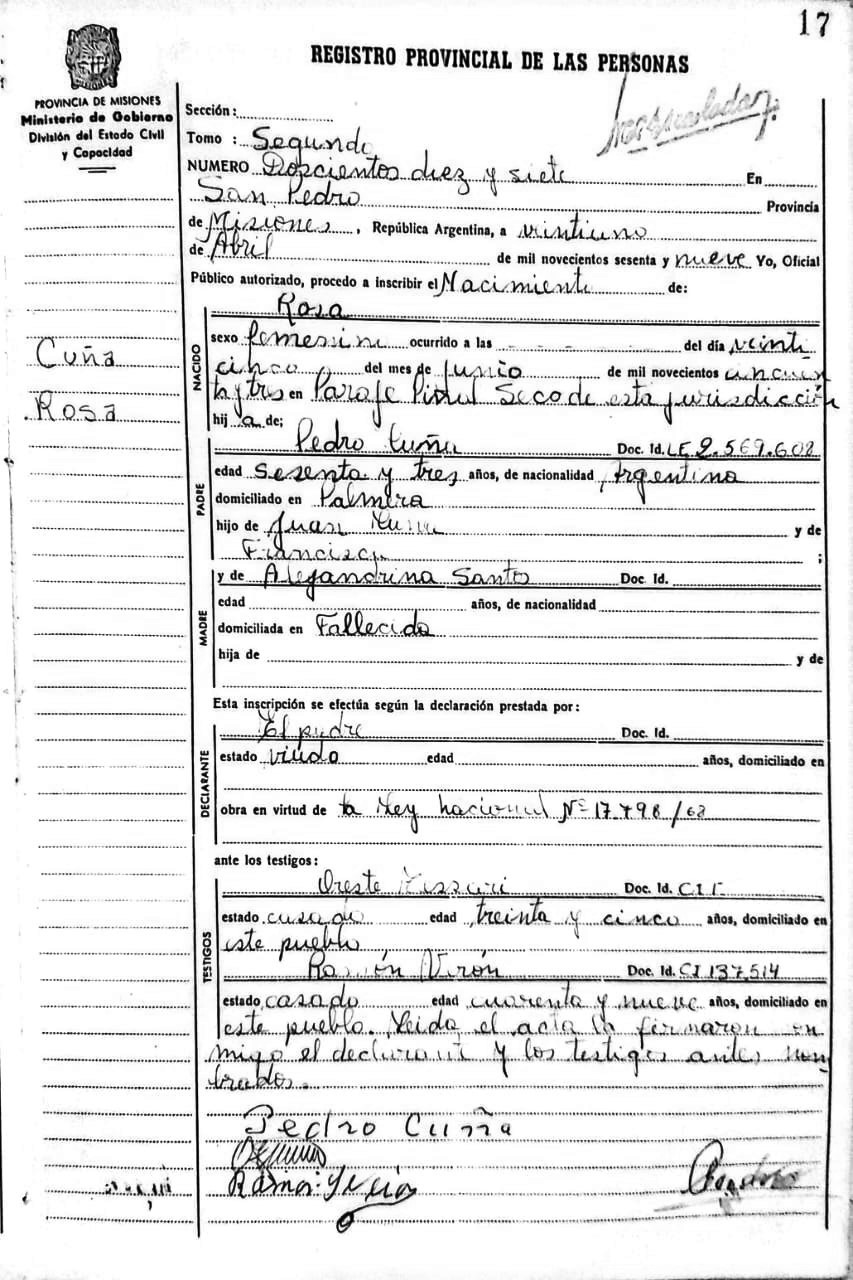 17
REGISTRO PROVINCIAL DE LAS PERSONAS
PROVINCIA DE MISIONES
Ministerio de Gobierno
División del Estado Civil
y Capacidad
Sección:
Tomo : Segundo
NUMERO Doscientos diez y siete En
San Pedro Provincia
de Misiones, República Argentina, a veintiuno
de Abril de mil novecientos sesenta y nueve Yo, Oficial
Público autorizado, procedo a inscribir el Nacimiento de:
Cuña
Rosa
NACIDO
Rosa
sexo femenino ocurrido a las - - - del día veinti
cinco del mes de Junio de mil novecientos cincuen
ta y tres en Paraje Seco de esta jurisdicción
hij a de;
PADRE
Pedro Cuña Doc. Id. LE 2.569.608
edad Sesenta y tres años, de nacionalidad Argentina
domiciliado en Palmera
hijo de Juan y de
Francisca ;
MADRE
y de Alejandrina Santos Doc. Id.
edad años, de nacionalidad
domiciliada en Fallecida
hija de y de
Esta inscripción se efectúa según la declaración prestada por:
DECLARANTE
El padre Doc. Id.
estado viudo edad años, domiciliado en
obra en virtud de la Ley nacional Nº 17.798/68
ante los testigos:
TESTIGOS
Oreste Doc. Id. C.I.
estado casado edad treinta y cinco años, domiciliado en
este pueblo
Ramón Doc. Id. CI 137,514
estado casado edad cuarenta y nueve años, domiciliado en
este pueblo. Leida el acta la firmaron con
migo el declarante y los testigos antes nom
brados.
Pedro Cuña
Ramon